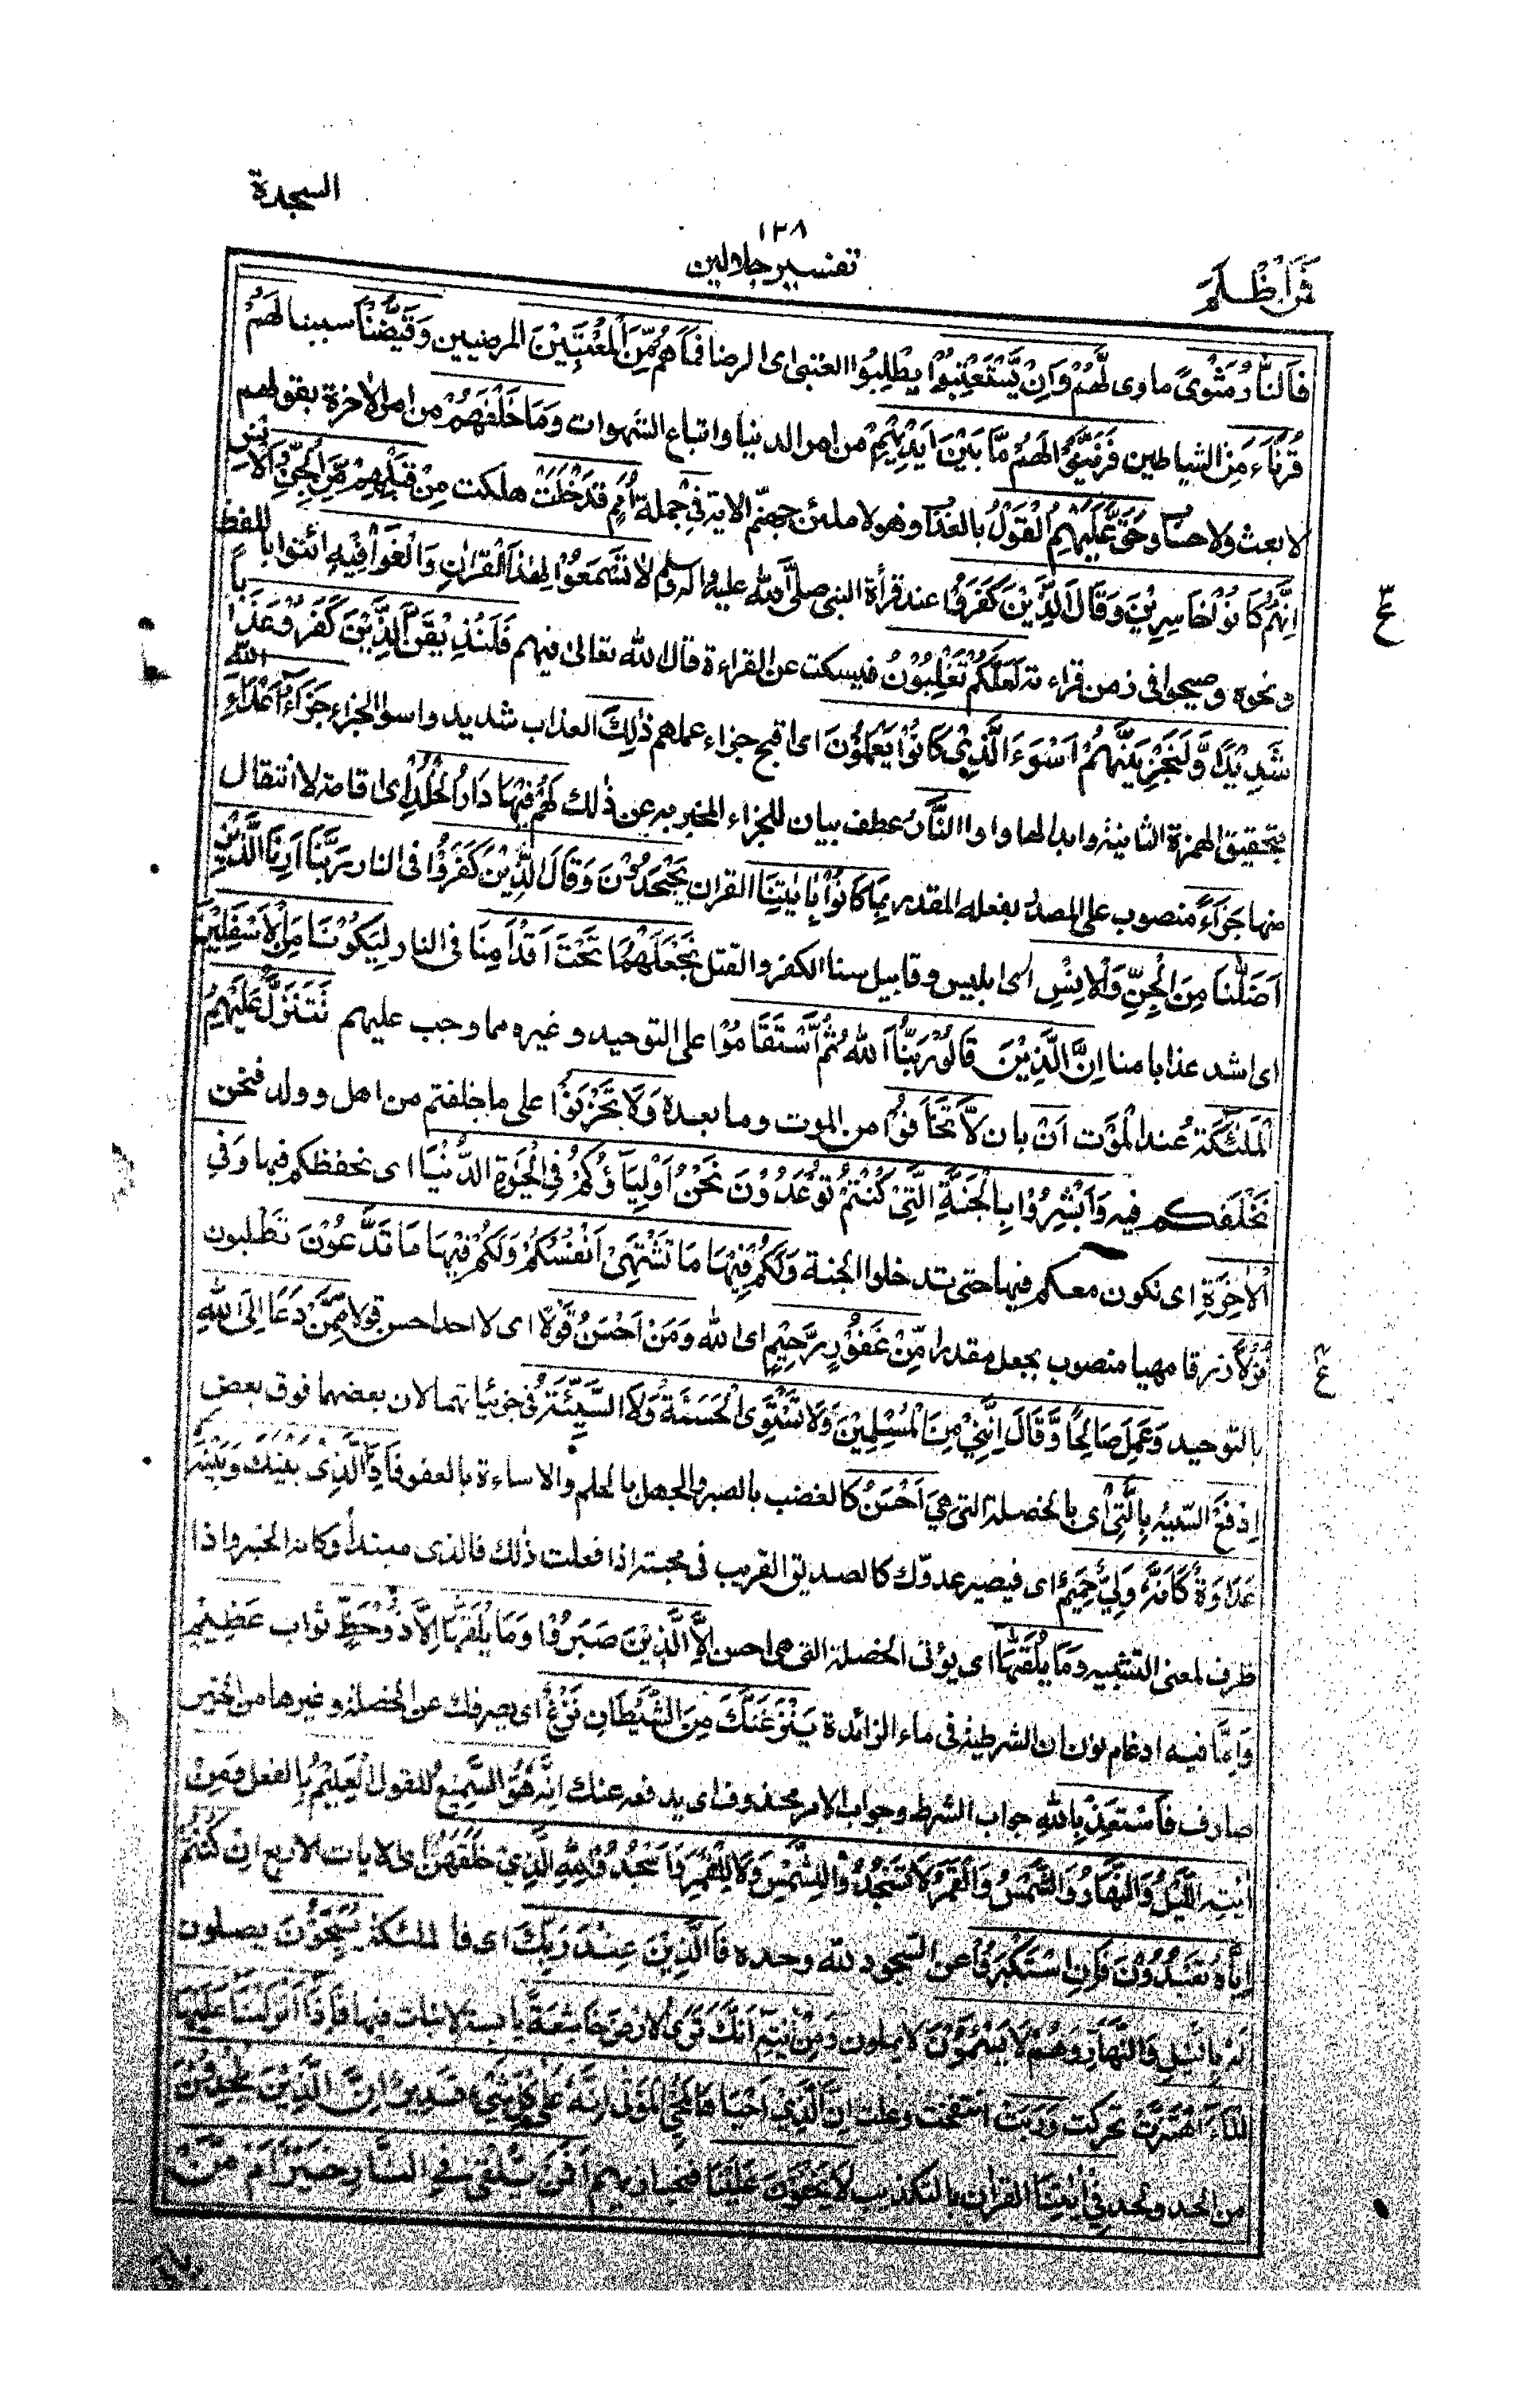 السجدة
١٣٨
تفسير جلالين
فمن اظلم
فَالنَّارُ مَثْوًى ماوى لَّهُمْ وَاِنْ يَّسْتَعْتِبُوْا يطلبوا العتبى اى الرضا فَمَا هُمْ مِّنَ الْمُعْتَبِيْنَ المرضيين وَقَيَّضْنَا سببنا لَهُمْ
قُرَنَاءَ من الشياطين فَزَيَّنُوْا لَهُمْ مَّا بَيْنَ اَيْدِيْهِمْ من امر الدنيا واتباع الشهوات وَمَا خَلْفَهُمْ من امر الاخرة بقولهم
لا بعث ولا حساب وَحَقَّ عَلَيْهِمُ الْقَوْلُ بالعذاب وهو لاملئن جهنم الاية فِىْ جملة اُمَمٍ قَدْ خَلَتْ هلكت مِنْ قَبْلِهِمْ مِّنَ الْجِنِّ وَالْاِنْسِ
اِنَّهُمْ كَانُوْا خَاسِرِيْنَ وَقَالَ الَّذِيْنَ كَفَرُوْا عند قرأة النبى صلى الله عليه واله وسلم لَا تَسْمَعُوْا لِهٰذَا الْقُرْاٰنِ وَالْغَوْا فِيْهِ ائتوا باللغط
ونحوه وصيحوا فى زمن قراءته لَعَلَّكُمْ تَغْلِبُوْنَ فيسكت عن القراءة قال الله تعالى فيهم فَلَنُذِيْقَنَّ الَّذِيْنَ كَفَرُوْا عَذَابًا
شَدِيْدًا وَّلَنَجْزِيَنَّهُمْ اَسْوَءَ الَّذِىْ كَانُوْا يَعْمَلُوْنَ اى اقبح جزاء عملهم ذٰلِكَ العذاب شديد واسوا الجزاء جَزَاءُ اَعْدَاءِ اللّٰهِ
بتحقيق الهمزة الثانية وابدالها واوا النَّارُ عطف بيان للجزاء المخبر به عن ذلك لَهُمْ فِيْهَا دَارُ الْخُلْدِ اى اقامة لا انتقال
منها جَزَاءً منصوب على المصدر بفعله المقدر بِمَا كَانُوْا بِاٰيٰتِنَا القران يَجْحَدُوْنَ وَقَالَ الَّذِيْنَ كَفَرُوْا فى النار رَبَّنَا اَرِنَا الَّذَيْنِ
اَضَلّٰنَا مِنَ الْجِنِّ وَالْاِنْسِ اى ابليس وقابيل سنا الكفر والقتل نَجْعَلْهُمَا تَحْتَ اَقْدَامِنَا فى النار لِيَكُوْنَا مِنَ الْاَسْفَلِيْنَ
اى اشد عذابا منا اِنَّ الَّذِيْنَ قَالُوْا رَبُّنَا اللّٰهُ ثُمَّ اسْتَقَامُوْا على التوحيد وغيره مما وجب عليهم تَتَنَزَّلُ عَلَيْهِمُ
الْمَلٰئِكَةُ عند الموت اَنْ بان لَّا تَخَافُوْا من الموت وما بعده وَلَا تَحْزَنُوْا على ما خلفتم من اهل وولد فنحن
نخلفكم فيه وَاَبْشِرُوْا بِالْجَنَّةِ الَّتِىْ كُنْتُمْ تُوْعَدُوْنَ نَحْنُ اَوْلِيَاؤُكُمْ فِى الْحَيٰوةِ الدُّنْيَا اى نحفظكم فيها وَفِى
الْاٰخِرَةِ اى نكون معكم فيها حتى تدخلوا الجنة وَلَكُمْ فِيْهَا مَا تَشْتَهِىْ اَنْفُسُكُمْ وَلَكُمْ فِيْهَا مَا تَدَّعُوْنَ تطلبون
نُزُلًا رزقا مهيا منصوب بجعل مقدرا مِّنْ غَفُوْرٍ رَّحِيْمٍ اى الله وَمَنْ اَحْسَنُ قَوْلًا اى لا احد احسن قولا مِّمَّنْ دَعَا اِلَى اللّٰهِ
بالتوحيد وَعَمِلَ صَالِحًا وَّقَالَ اِنَّنِىْ مِنَ الْمُسْلِمِيْنَ وَلَا تَسْتَوِى الْحَسَنَةُ وَلَا السَّيِّئَةُ فى جزئياتهما لان بعضهما فوق بعض
اِدْفَعْ السيئة بِالَّتِىْ اى بالخصلة التى هِىَ اَحْسَنُ كالغضب بالصبر والجهل بالحلم والاساءة بالعفو فَاِذَا الَّذِىْ بَيْنَكَ وَبَيْنَهٗ
عَدَاوَةٌ كَاَنَّهٗ وَلِىٌّ حَمِيْمٌ اى فيصير عدوك كالصديق القريب فى محبته اذا فعلت ذلك فالذى مبتدأ وكانه الخبر واذا
ظرف لمعنى التشبيه وَمَا يُلَقّٰهَا اى يؤتى الخصلة التى هى احسن اِلَّا الَّذِيْنَ صَبَرُوْا وَمَا يُلَقّٰهَا اِلَّا ذُوْ حَظٍّ ثواب عَظِيْمٍ
وَاِمَّا فيه ادغام نون ان الشرطية فى ماء الزائدة يَنْزَغَنَّكَ مِنَ الشَّيْطَانِ نَزْغٌ اى يصرفك عن الخصلة وغيرها من الخير
صارف فَاسْتَعِذْ بِاللّٰهِ جواب الشرط وجواب الامر محذوف اى يدفعه عنك اِنَّهٗ هُوَ السَّمِيْعُ للقول الْعَلِيْمُ بالفعل وَمِنْ
اٰيٰتِهِ اللَّيْلُ وَالنَّهَارُ وَالشَّمْسُ وَالْقَمَرُ لَا تَسْجُدُوْا لِلشَّمْسِ وَلَا لِلْقَمَرِ وَاسْجُدُوْا لِلّٰهِ الَّذِىْ خَلَقَهُنَّ اى الايات الاربع اِنْ كُنْتُمْ
اِيَّاهُ تَعْبُدُوْنَ فَاِنِ اسْتَكْبَرُوْا عن السجود لله وحده فَالَّذِيْنَ عِنْدَ رَبِّكَ اى فالملئكة يُسَبِّحُوْنَ يصلون
لَهٗ بِالَّيْلِ وَالنَّهَارِ وَهُمْ لَا يَسْئَمُوْنَ لا يملون وَمِنْ اٰيٰتِهٖ اَنَّكَ تَرَى الْاَرْضَ خَاشِعَةً يابسة لا نبات فيها فَاِذَا اَنْزَلْنَا عَلَيْهَا
الْمَاءَ اهْتَزَّتْ تحركت وَرَبَتْ انتفخت وعلت اِنَّ الَّذِىْ اَحْيَاهَا لَمُحْىِ الْمَوْتٰى اِنَّهٗ عَلٰى كُلِّ شَىْءٍ قَدِيْرٌ اِنَّ الَّذِيْنَ يُلْحِدُوْنَ
من الحد ولحد فِىْ اٰيٰتِنَا القران بالتكذيب لَا يَخْفَوْنَ عَلَيْنَا فنجازيهم اَفَمَنْ يُّلْقٰى فِى النَّارِ خَيْرٌ اَمْ مَّنْ